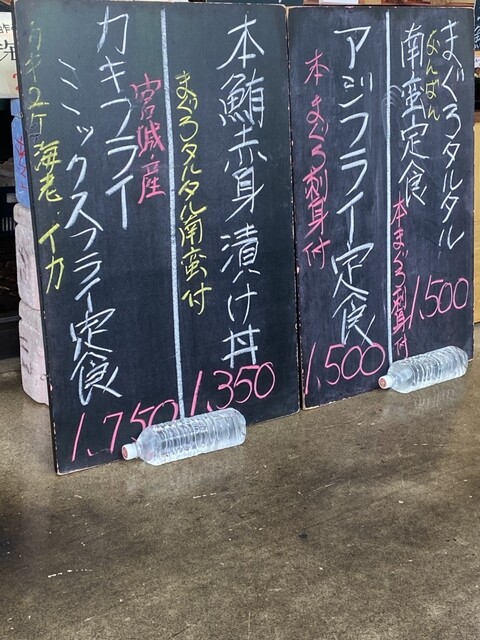 まぐろタルタル
なんばん
南蛮定食
本まぐろ刺身付
1,500
アジフライ定食
本まぐろ刺身付
1,500
本鮪赤身漬け丼
まぐろタルタル南蛮付
1,350
カキフライ
宮城産
ミックスフライ定食
カキ2ケ 海老・イカ
1,750